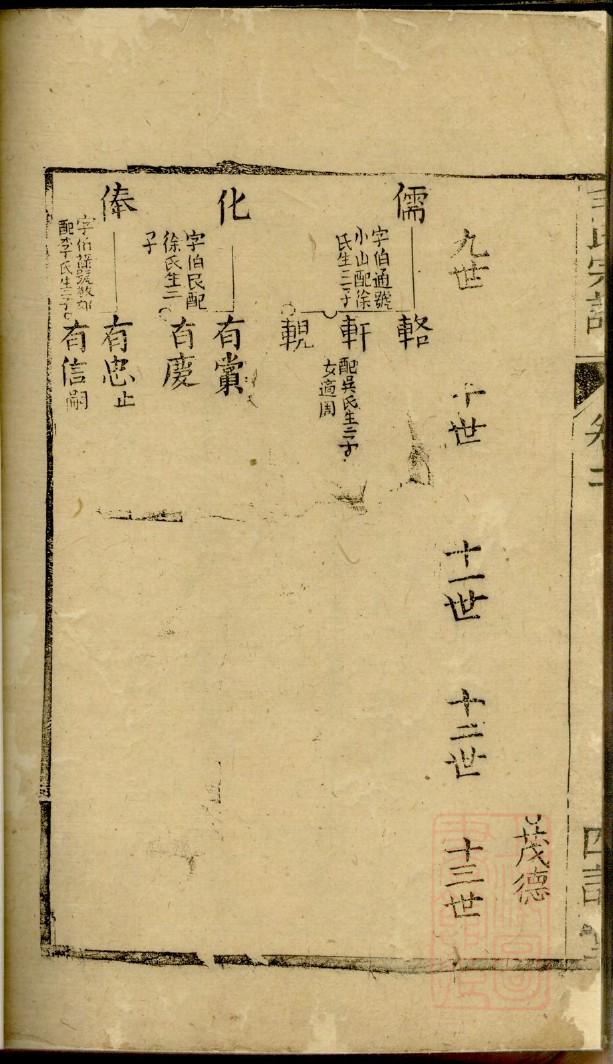 氏宗譜
卷二
茂德
九世
十世
十一世
十二世
十三世
儒
字伯通號
小山配徐
氏生三子
輅
軒
配吳氏生二子
女適周
輗
化
字伯民配
徐氏生二
子
有黨
有慶
俸
配李氏生二子
有忠止
有信嗣